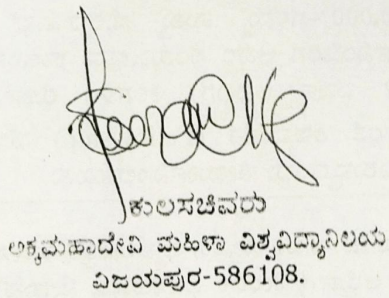 ಕುಲಸಚಿವರು
ಅಕ್ಕಮಹಾದೇವಿ ಮಹಿಳಾ ವಿಶ್ವವಿದ್ಯಾನಿಲಯ
ವಿಜಯಪುರ-586108.